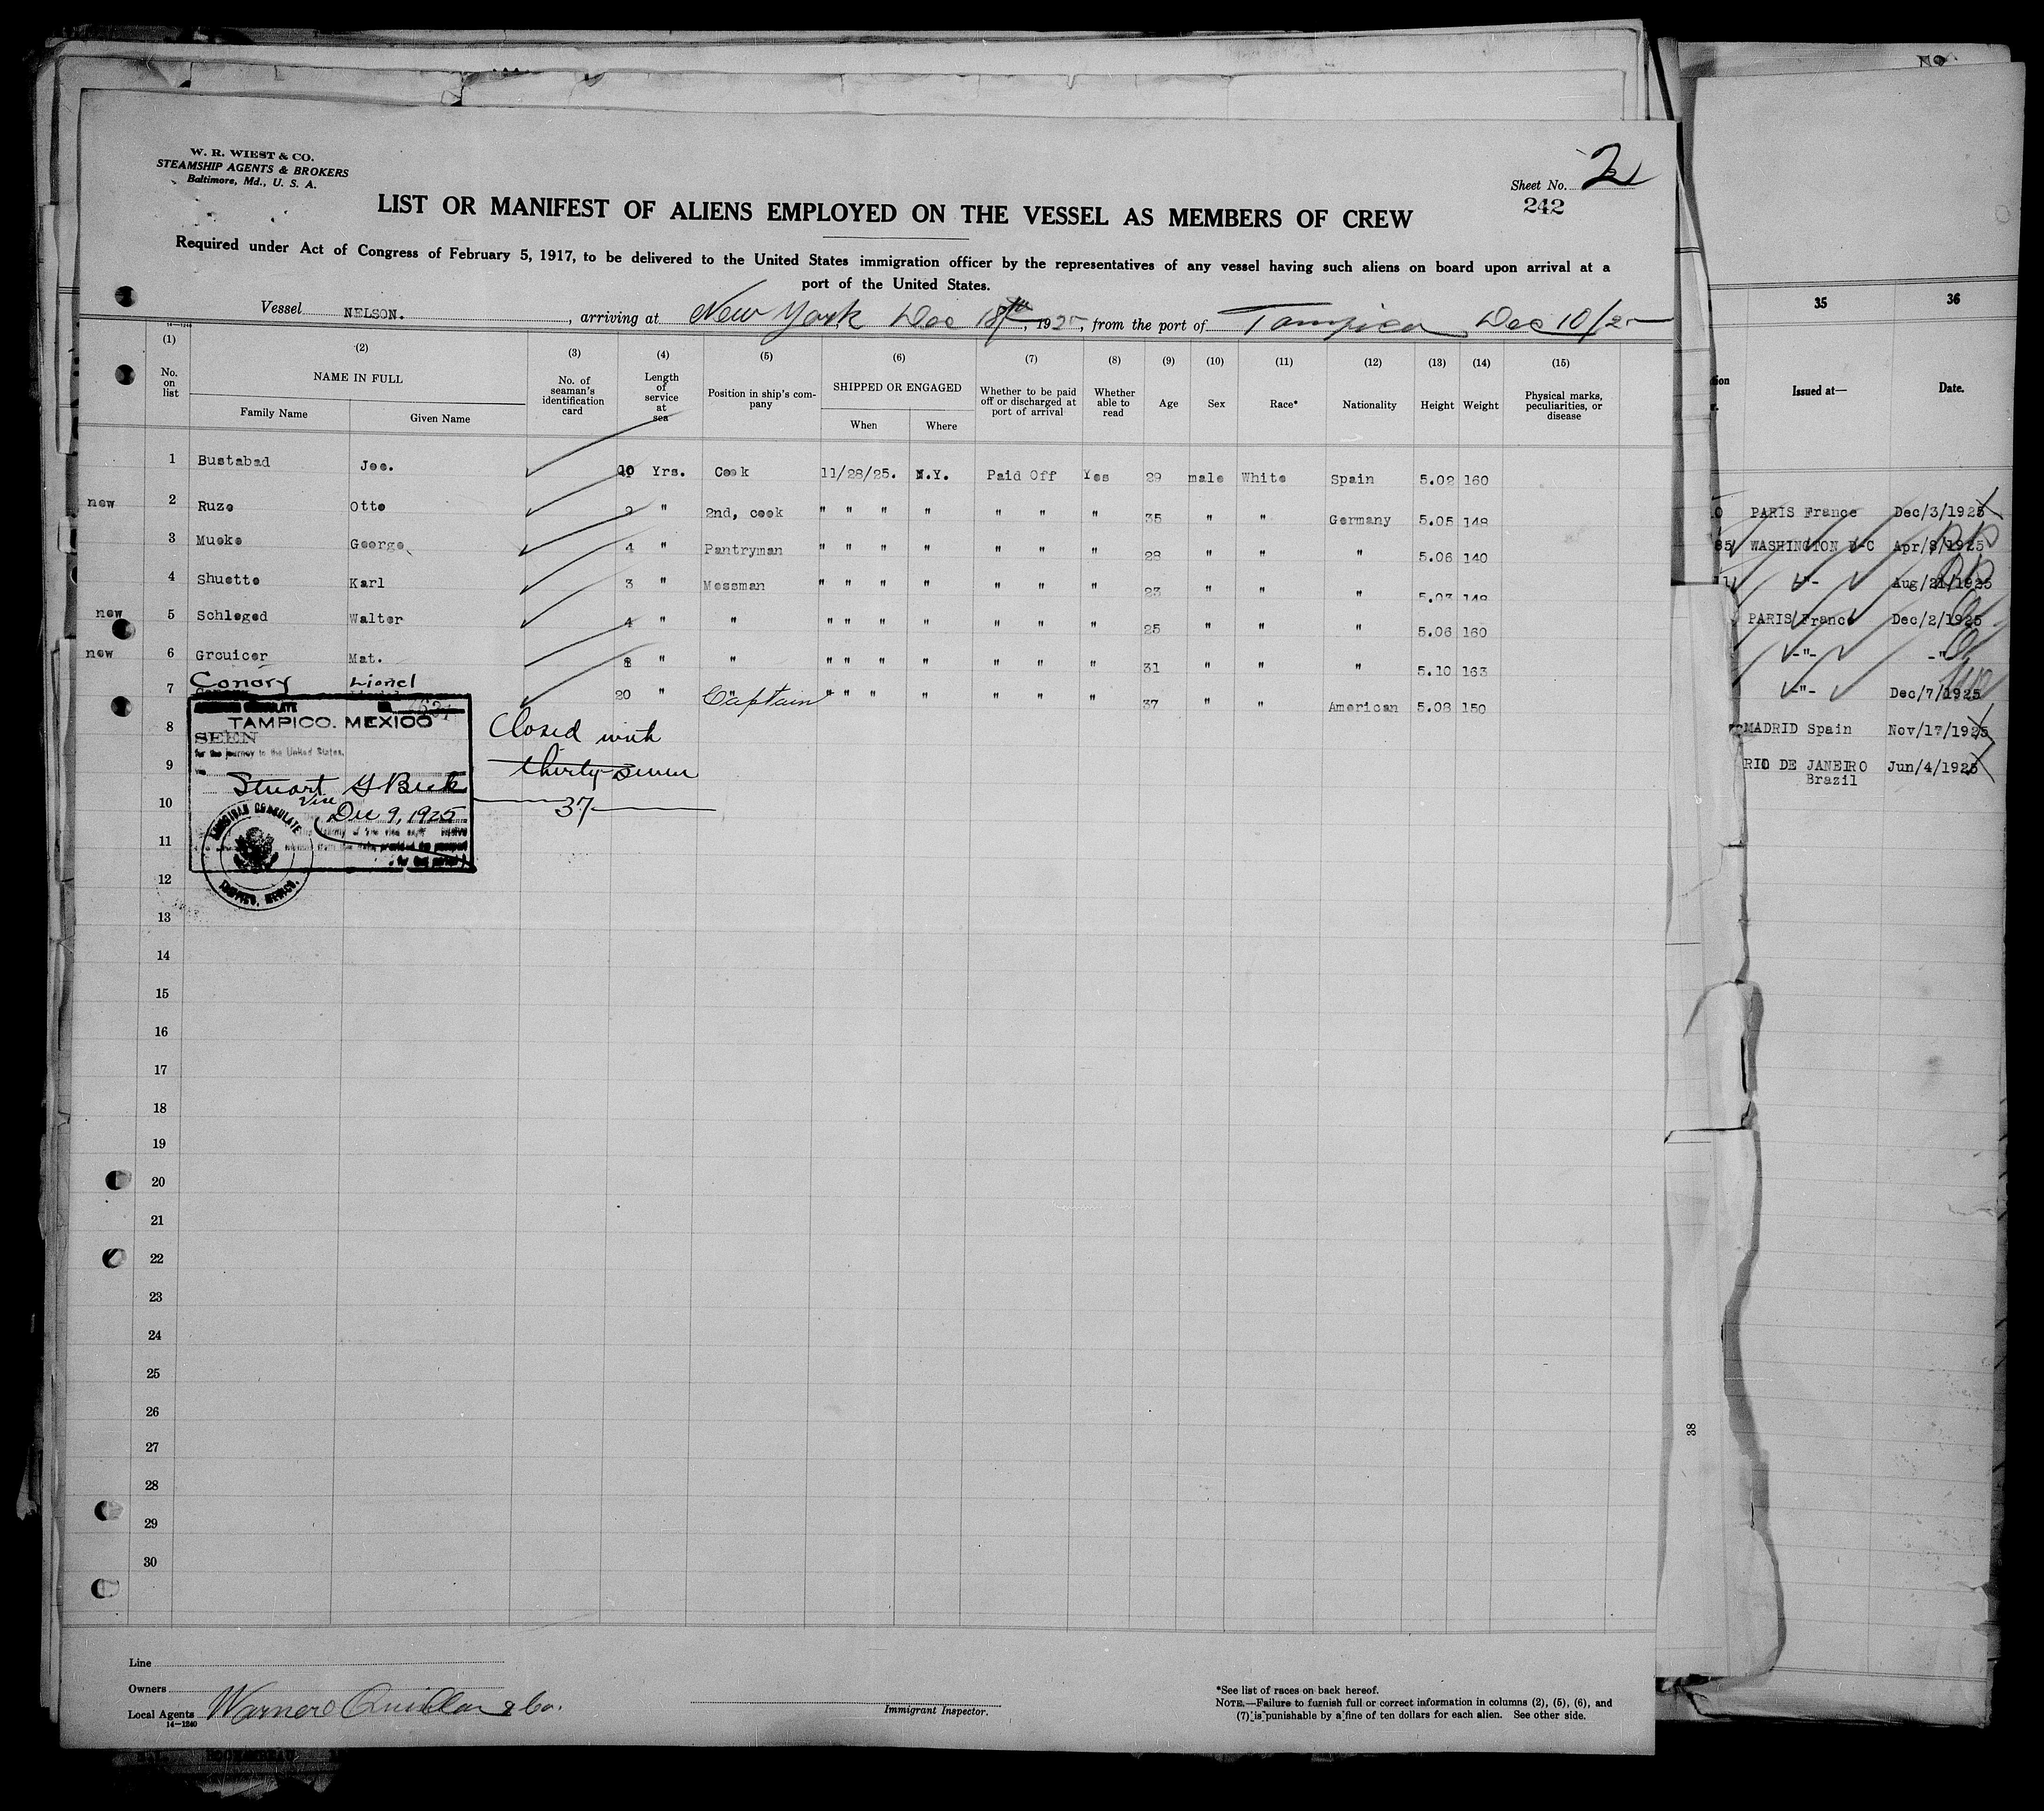 W. R. WIEST & CO.
STEAMSHIP AGENTS & BROKERS
Baltimore, Md., U. S. A.
Sheet No. 2
242
LIST OR MANIFEST OF ALIENS EMPLOYED ON THE VESSEL AS MEMBERS OF CREW
Required under Act of Congress of February 5, 1917, to be delivered to the United States immigration officer by the representatives of any vessel having such aliens on board upon arrival at a
port of the United States.
Vessel NELSON. , arriving at New York Dec 18th, 1925, from the port of Tampico Dec 10/25
14-1240
(1) (2) (3) (4) (5) (6) (7) (8) (9) (10) (11) (12) (13) (14) (15)
No. on list NAME IN FULL Family Name Given Name No. of seaman's identification card Length of service at sea Position in ship's company SHIPPED OR ENGAGED When Where Whether to be paid off or discharged at port of arrival Whether able to read Age Sex Race* Nationality Height Weight Physical marks, peculiarities, or disease
1 Bustabad Joe. 10 Yrs. Cook 11/28/25. N.Y. Paid Off Yes 29 male White Spain 5.02 160
new 2 Ruze Otto " 2nd, cook " " " " " " " 35 " " Germany 5.05 148
3 Mueke George 4 " Pantryman " " " " " " " 28 " " " 5.06 140
4 Shuette Karl 3 " Messman " " " " " " " 23 " " " 5.03 148
new 5 Schleged Walter 4 " " " " " " " " " 25 " " " 5.06 160
new 6 Grouicer Mat. " " " " " " " " " 31 " " " 5.10 163
Conory Lionel
7 20 " Captain " " " " " " " 37 " " American 5.08 150
8
9
10
11
12
13
14
15
16
17
18
19
20
21
22
23
24
25
26
27
28
29
30
AMERICAN CONSULATE
TAMPICO. MEXICO
SEEN
for the journey to the United States.
Stuart
Vice
Dec 9, 1925
AMERICAN CONSULATE
TAMPICO, MEXICO.
Closed with
thirty seven
37
Line
Owners
Local Agents Warner Quinlan & Co.
14-1240
Immigrant Inspector.
*See list of races on back hereof.
NOTE.—Failure to furnish full or correct information in columns (2), (5), (6), and
(7) is punishable by a fine of ten dollars for each alien. See other side.
35 36
Issued at— Date.
PARIS France Dec/3/1925
WASHINGTON D-C Apr/8/1925
-"- Aug/21/1925
PARIS France Dec/2/1925
-"- -"-
-"- Dec/7/1925
MADRID Spain Nov/17/1925
RIO DE JANEIRO Jun/4/1925
Brazil
38